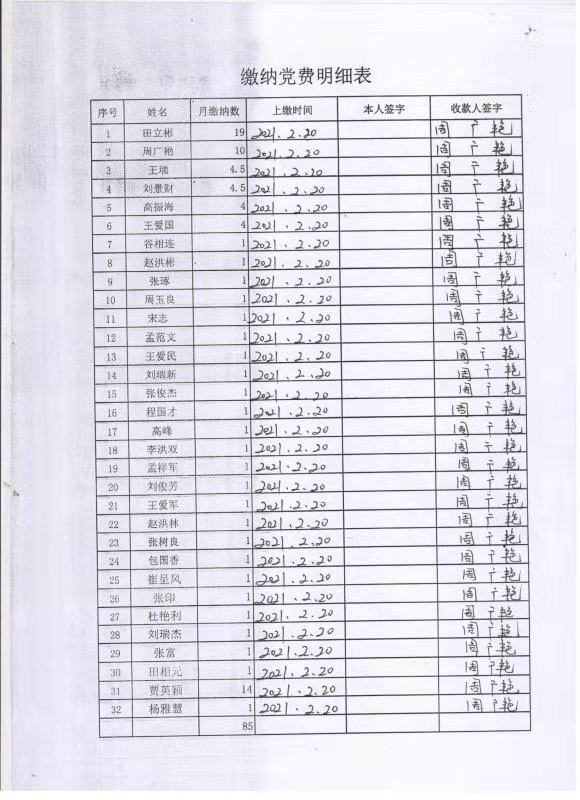 缴纳党费明细表
序号 姓名 月缴纳数 上缴时间 本人签字 收款人签字
1 田立彬 19 2021.2.20 周广艳
2 周广艳 10 2021.2.20 周广艳
3 王瑞 4.5 2021.2.20 周广艳
4 刘景财 4.5 2021.2.20 周广艳
5 高振海 4 2021.2.20 周广艳
6 王爱国 4 2021.2.20 周广艳
7 谷相连 1 2021.2.20 周广艳
8 赵洪彬 1 2021.2.20 周广艳
9 张琢 1 2021.2.20 周广艳
10 周玉良 1 2021.2.20 周广艳
11 宋志 1 2021.2.20 周广艳
12 孟范文 1 2021.2.20 周广艳
13 王爱民 1 2021.2.20 周广艳
14 刘瑞新 1 2021.2.20 周广艳
15 张俊杰 1 2021.2.20 周广艳
16 程国才 1 2021.2.20 周广艳
17 高峰 1 2021.2.20 周广艳
18 李洪双 1 2021.2.20 周广艳
19 孟祥军 1 2021.2.20 周广艳
20 刘俊芳 1 2021.2.20 周广艳
21 王爱军 1 2021.2.20 周广艳
22 赵洪林 1 2021.2.20 周广艳
23 张树良 1 2021.2.20 周广艳
24 包国香 1 2021.2.20 周广艳
25 崔呈风 1 2021.2.20 周广艳
26 张印 1 2021.2.20 周广艳
27 杜艳利 1 2021.2.20 周广艳
28 刘瑞杰 1 2021.2.20 周广艳
29 张富 1 2021.2.20 周广艳
30 田相元 1 2021.2.20 周广艳
31 贾英颖 14 2021.2.20 周广艳
32 杨雅慧 1 2021.2.20 周广艳
85